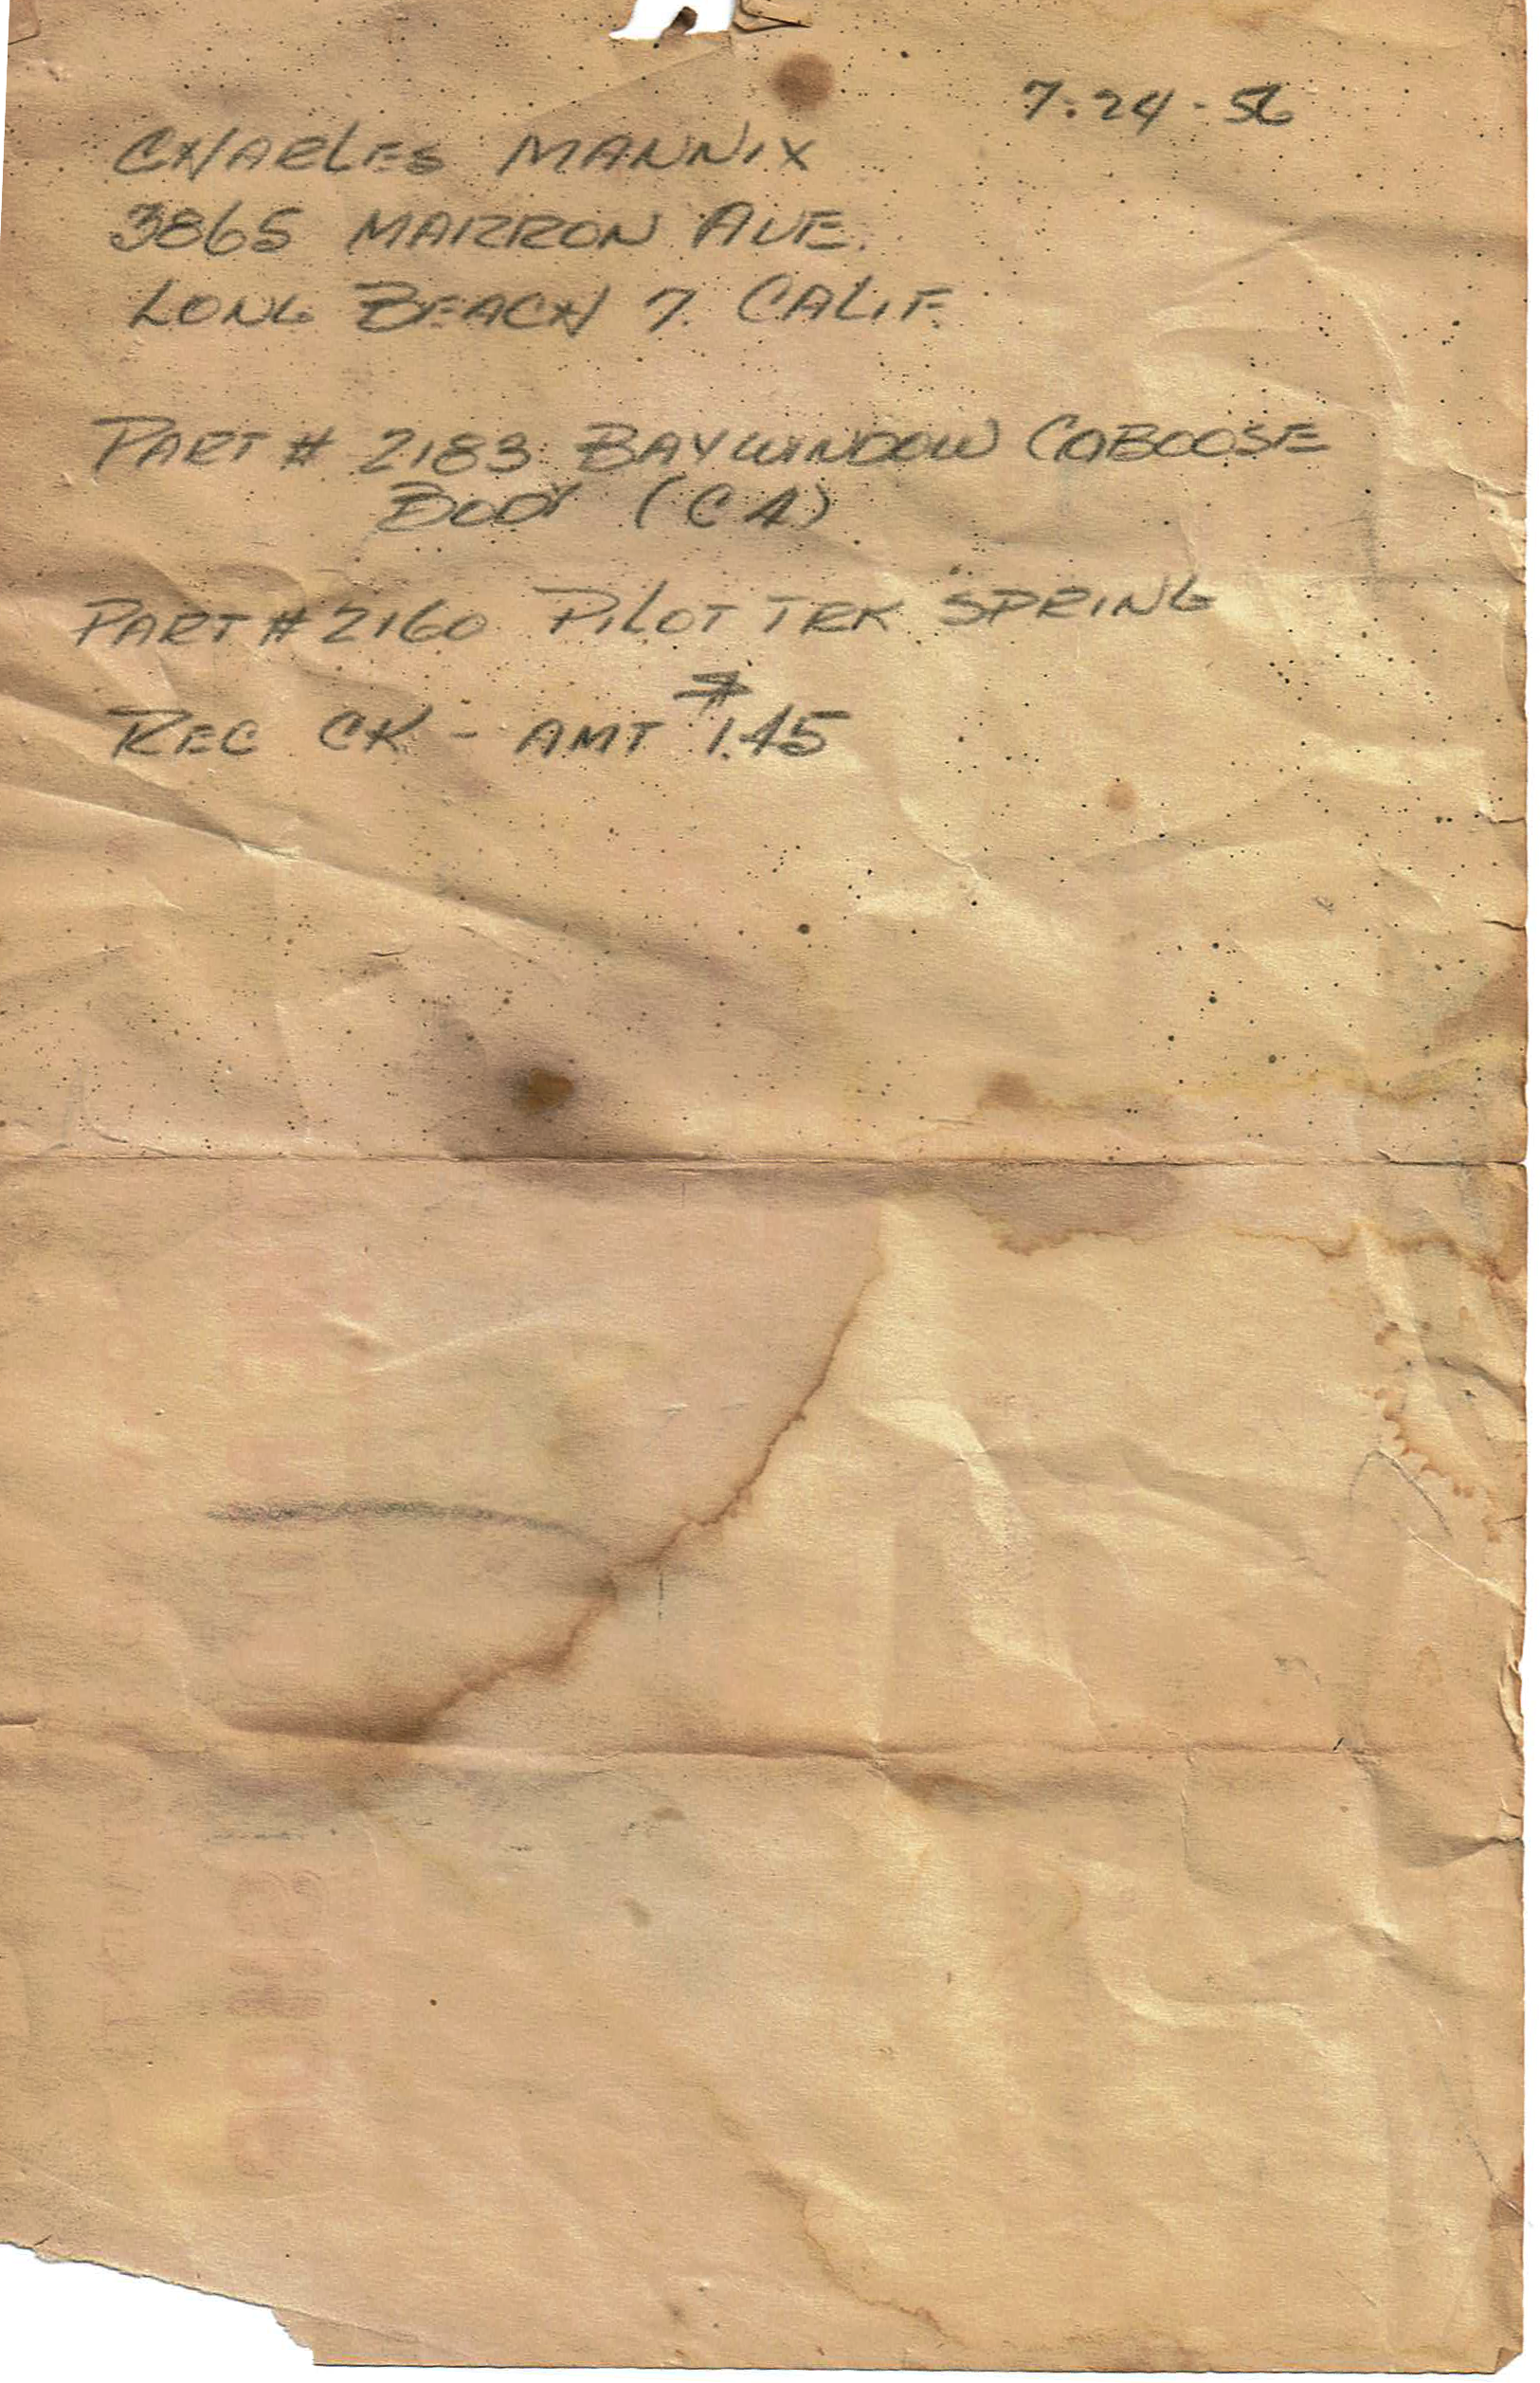 7-24-56
CHARLES MANNIX
3865 MARRON AVE.
LONG BEACH 7. CALIF.
PART # 2183 BAYWINDOW CABOOSE
BODY (CA)
PART # 2160 PILOT TRK SPRING
REC CK - AMT $1.45